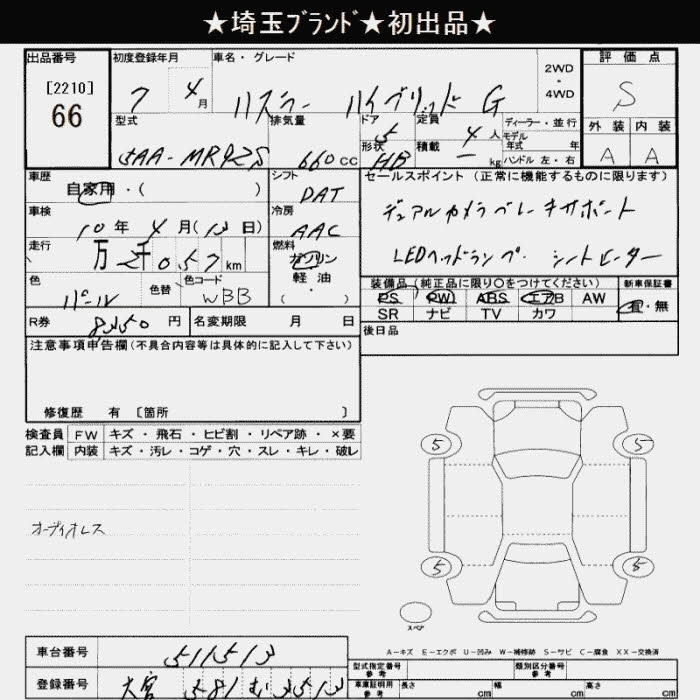 ★埼玉ﾌﾞﾗﾝﾄﾞ★初出品★
出品番号 初度登録年月 車名・グレード 2WD・4WD 評価点
[2210]
66
7 4月 ハスラー ハイブリッド G S
型式 排気量 ドア 定員 ディーラー・並行 外装 内装
5AA-MR92S 660CC 5 4人 モデル年式 年
形状 積載 HB - kg ハンドル 左・右 A A
車歴 シフト セールスポイント (正常に機能するものに限ります)
自家用・( ) DAT
デュアルカメラブレーキサポート
車検 冷房
10年 4月(13日) AAC
LEDヘッドランプ シートヒーター
走行 燃料
万 千 2057km ガソリン
軽油
・( )
色 色替 色コード
パール WBB
装備品(純正品に限り○をつけてください) 新車保証書
PS PW ABS エアB AW 有・無
SR ナビ TV カワ
R券 8350円 名変期限 月 日
後日品
注意事項申告欄(不具合内容等は具体的に記入して下さい)
修復歴 有 〔箇所 〕
検査員 FW キズ・飛石・ヒビ割・リペア跡・×要
記入欄 内装 キズ・汚レ・コゲ・穴・スレ・キレ・破レ
オーディオレス
5 5
5 5
スペア
A-キズ E-エクボ U-凹み W-補修跡 S-サビ C-腐食 XX-交換済
車台番号 511513
登録番号 大宮 581 む 3513
型式指定番号 参考 類別区分番号 参考
車庫証明用 参考 長さ cm 幅 cm 高さ cm